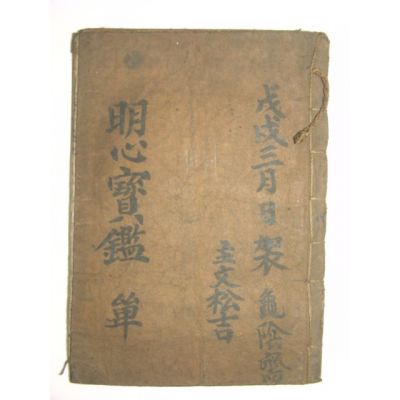 戊戌三月日製龜陰齋
主文松吉
明心寶鑑 單